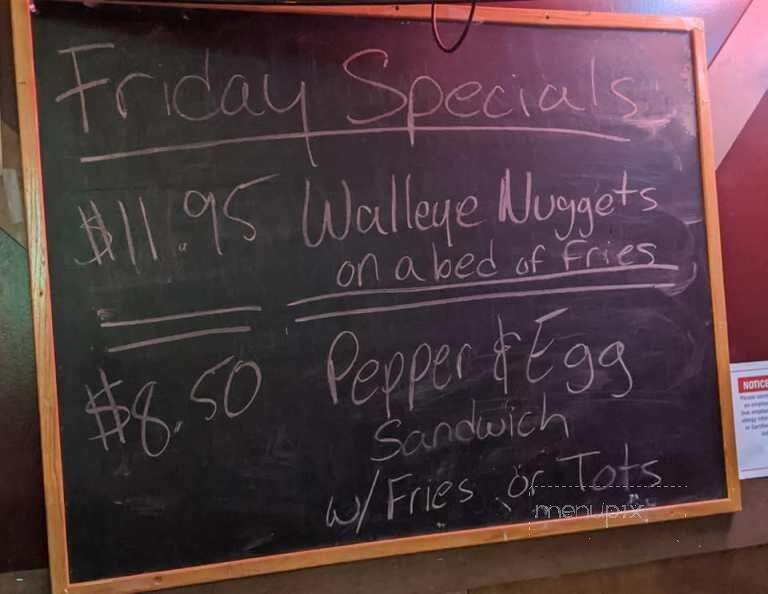 Friday Specials
$11.95 Walleye Nuggets
on a bed of Fries
$8.50 Pepper & Egg
Sandwich
w/ Fries or Tots
menupix
NOTICE